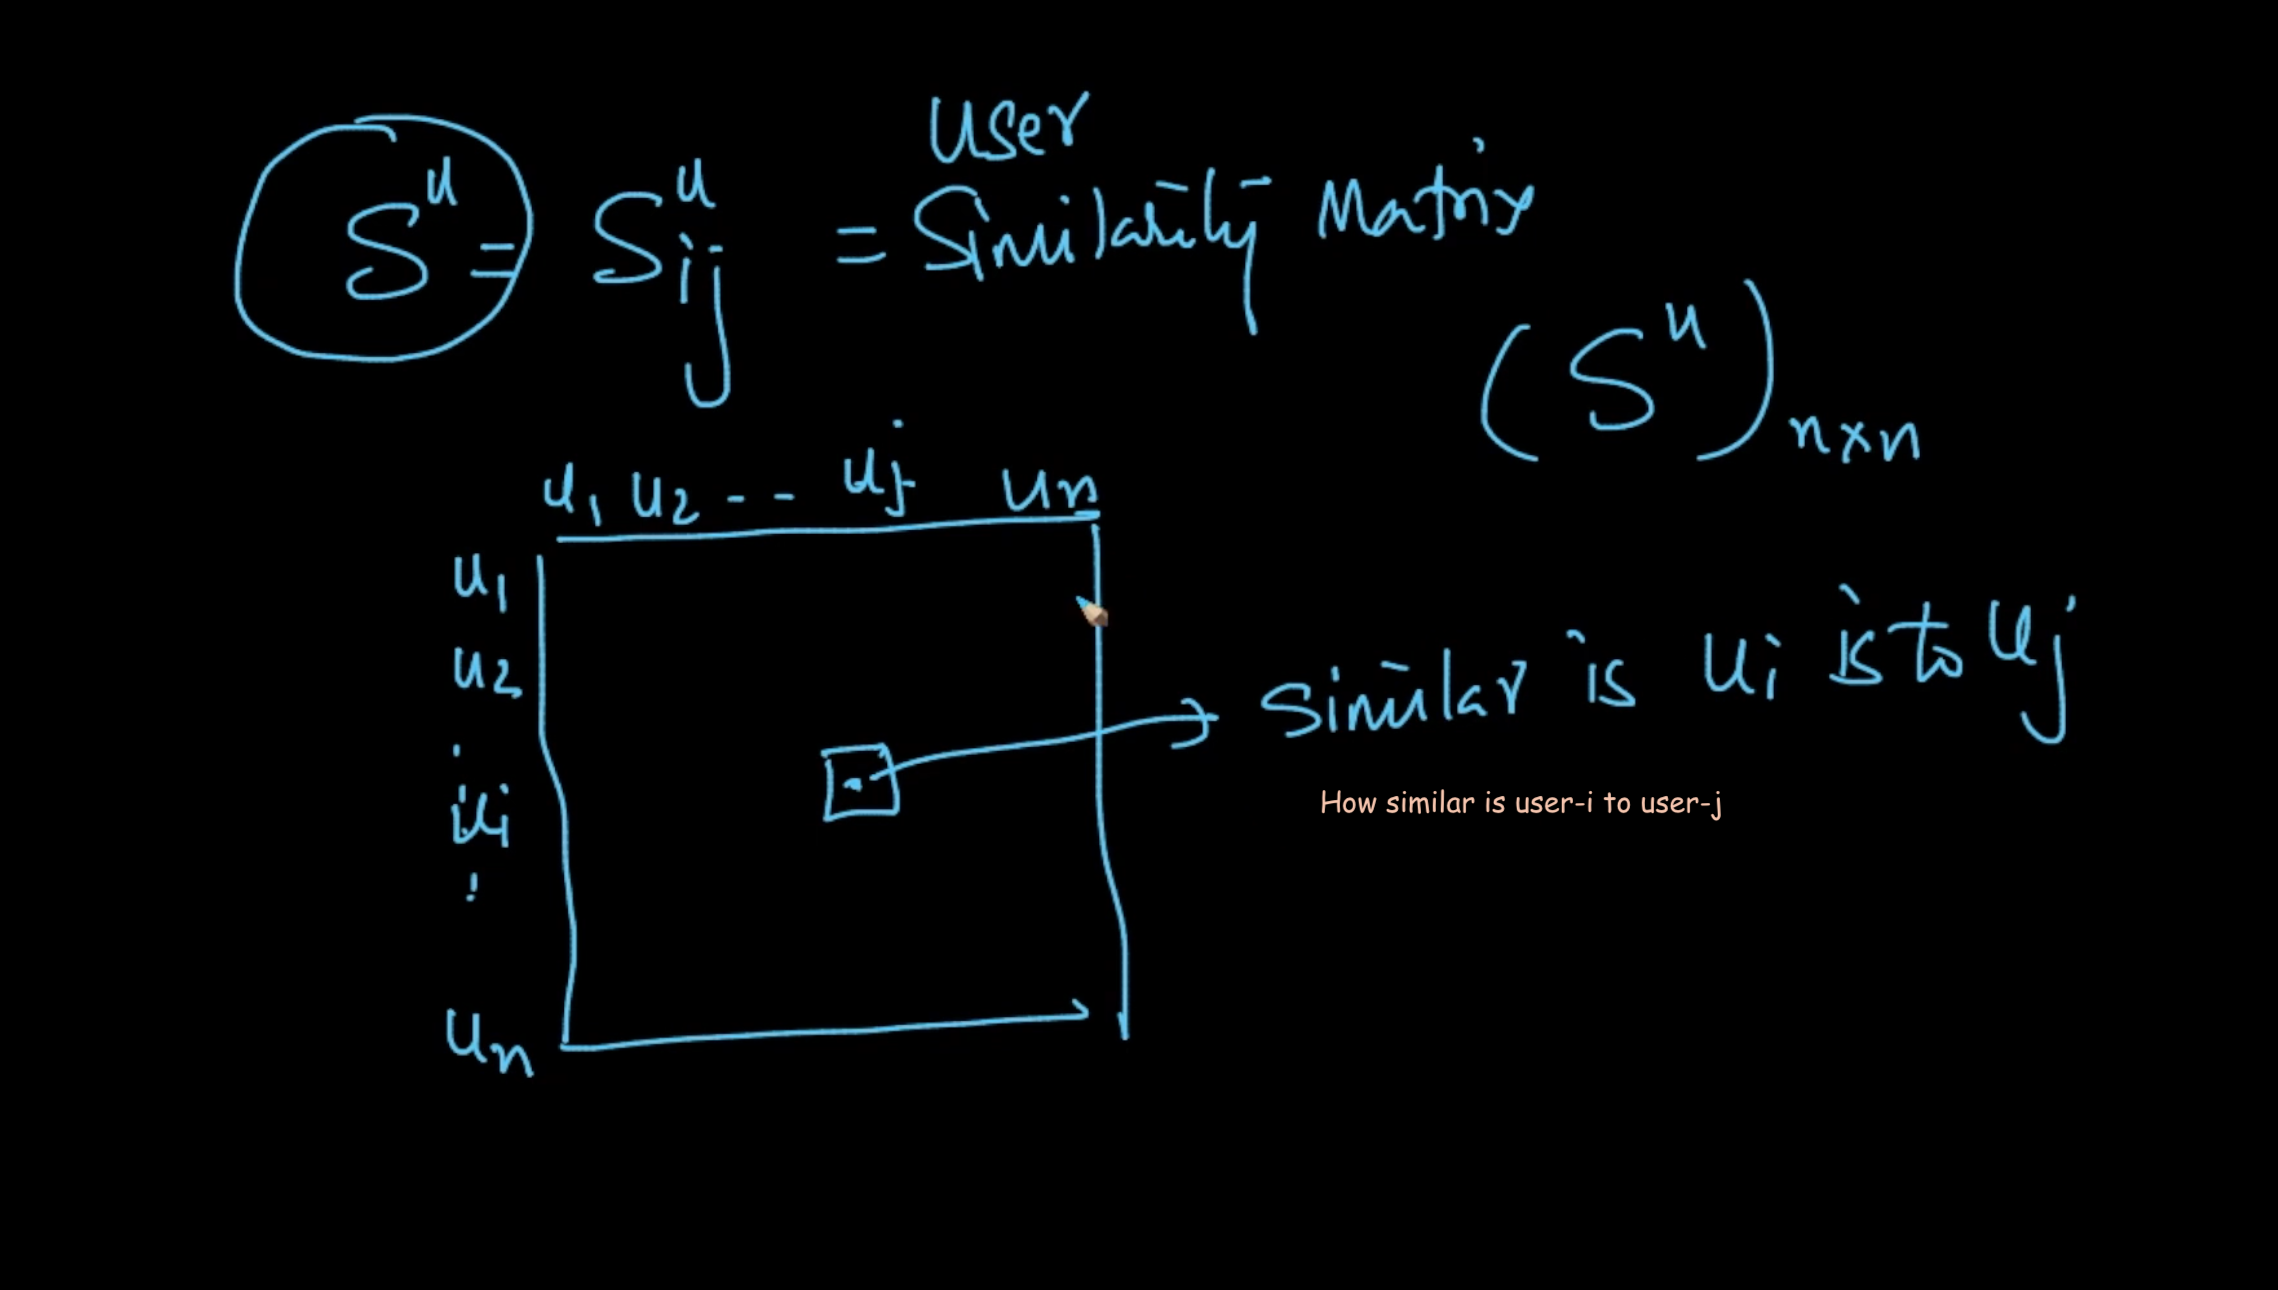 User
S^u = S^u_ij = Similarity Matrix
(S^u)_n×n
u1 u2 -- uj un
u1
u2
.
ui
:
un
Similar is ui is to uj
How similar is user-i to user-j